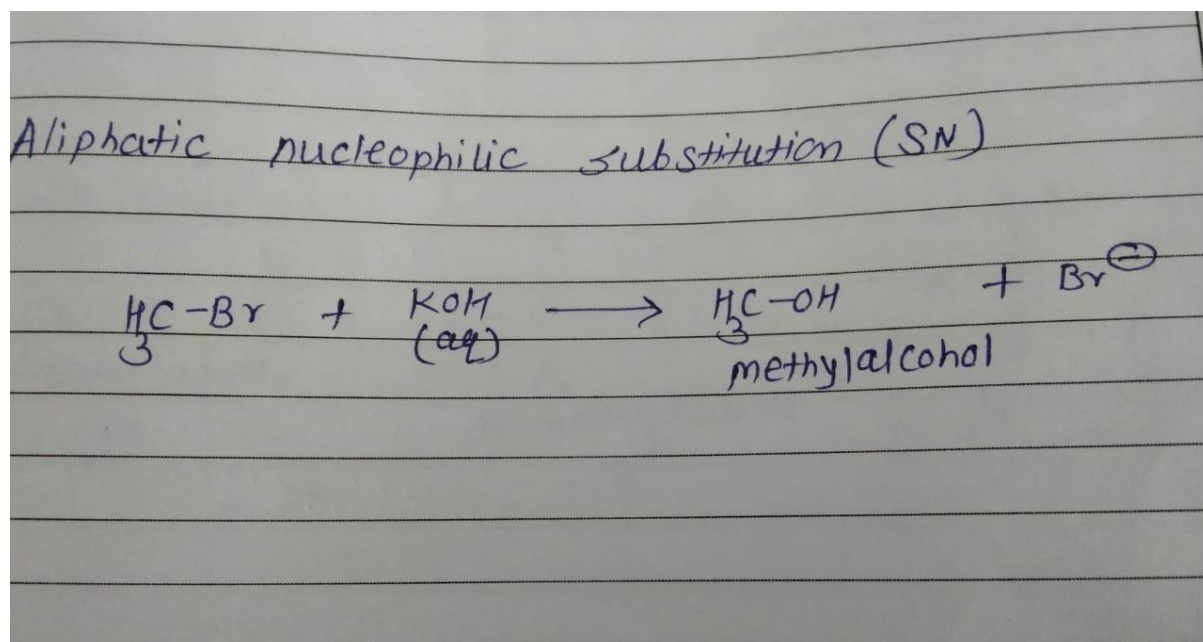 Aliphatic nucleophilic substitution (SN)
H₃C-Br + KOH ⟶ H₃C-OH + Br⊖
(aq)
methylalcohol